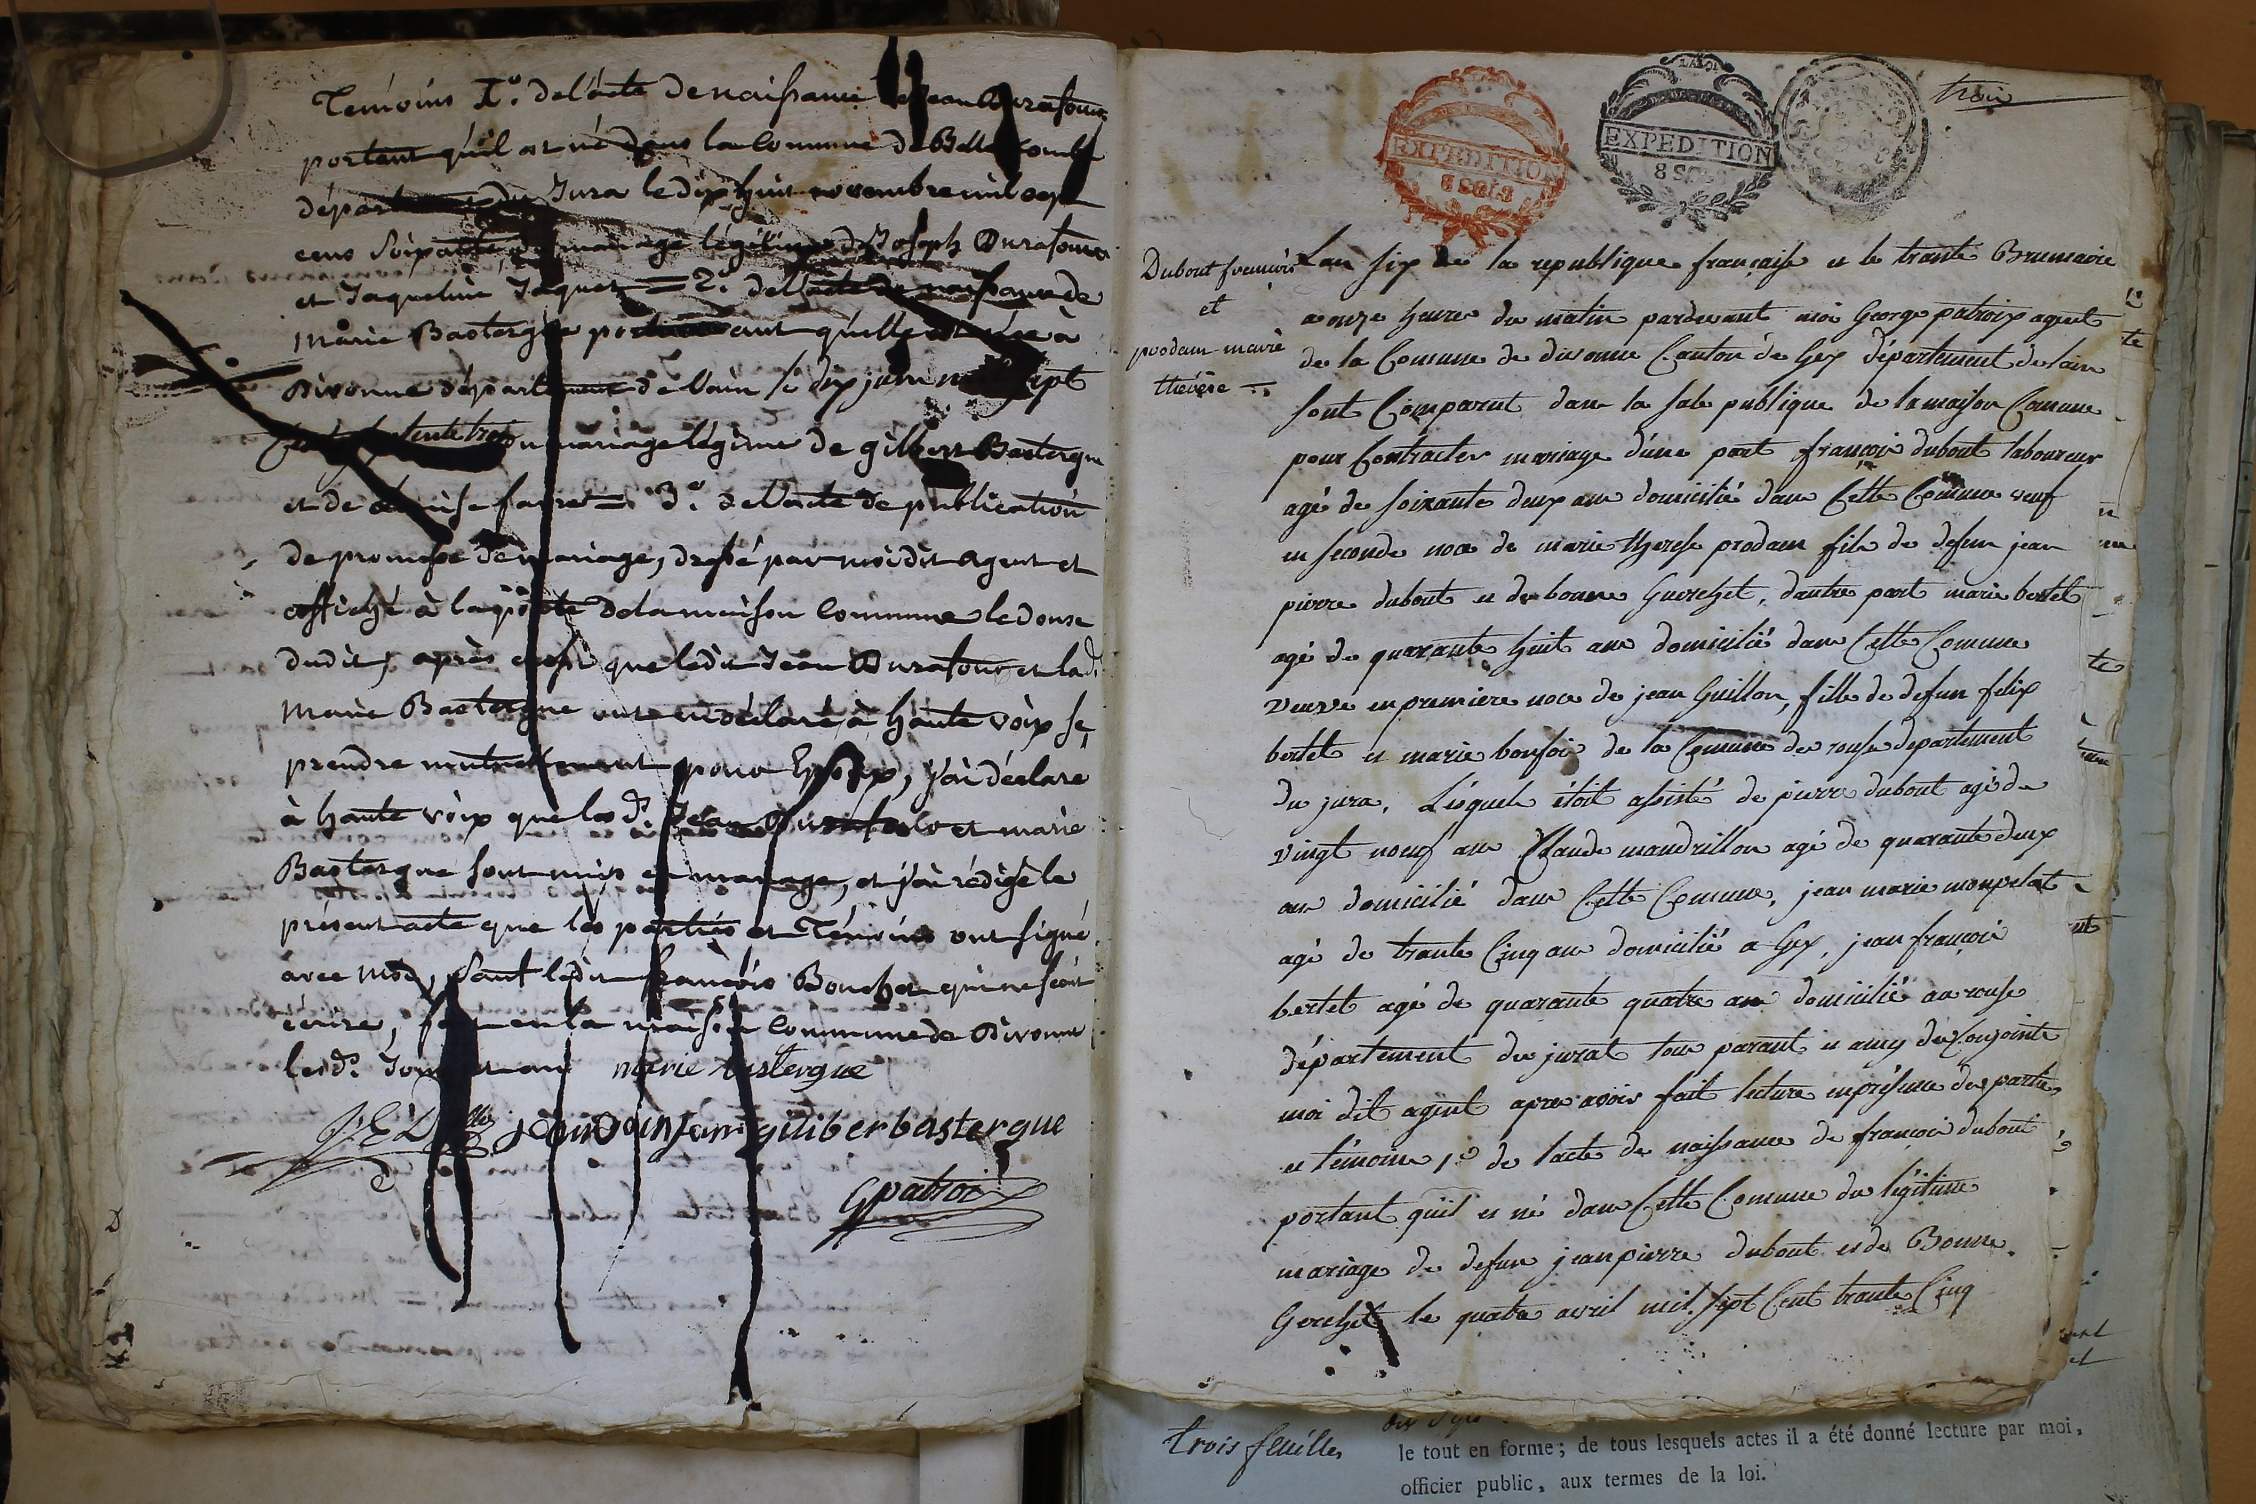 Temoins 1.° de l'acte de naissance de Jean Durafour
portant qu'il est né dans la commune de Bellecombe
département du Jura le dix huit novembre mil sept
cens soixante du mariage légitime de Joseph Durafour
et Jaqueline Jaquet = 2.° de l'acte de naissance de
Marie Bastergue portant qu'elle est née à
Divonne département de l'ain le dix juin mil sept
cent septente trois du mariage légime de gilbert Bastergue
et de favre = 3.° de l'acte de publication
de promesse de mariage, dressé par moi dit agent et
affiché à la porte de la maison commune le douse
dudit, après aussi que ledit Jean Durafour et lad.
Marie Bastergue ont eu déclaré à haute voix se
prendre mutuellement pour Epoux, j'ai déclaré
à haute voix que les d.s Jean Durafour et marie
Bastergue sont unis en mariage, et j'ai rédigé le
présent acte que les parties et Témoins ont signé
avec moi, sauf ledit françois Bouchet qui ne scait
ecrire, fait en la maison commune de Divonne
lesd.s Jour et an marie bastergue
giliber bastergue
G patroix
trois
EXPEDITION
8 SOLS
LA LOI
EXPEDITION
8 SOLS
Dubout francois
et
prodam marie
therese =
Lan six de la republique française et le trante Brumaire
a onze heures du matin pardevant moi George patroix agent
de la Comune de divonne Canton de Gex département de lain
sont Comparut dans la sale publique de la maison Comune
pour Contracter mariage d'une part françois dubout laboureur
agé de soixante deux ans domicilié dans Cette Comune veuf
en seconde noce de marie therese prodam fils de defun jean
pierre dubout et de bonne Guerchet, dautre part marie bertet
agé de quarante huit ans domicilié dans Cette Comune
veuve en premiere noce de jean Guillon, fille de defun felix
bertet et marie bonfoi de la Comune de rouse departement
du jura, Lesquels étoit assisté de pierre dubout agé de
vingt neuf ans Claude mandrillon agé de quarante deux
ans domicilié dans Cette Comune, jean marie monpelat
agé de trante Cinq ans domicilié a Gex, jean françois
bertet agé de quarante quatre ans domicilié au rouse
département du jurat tous parant et amy des Conjointe
moi dit agent apres avoir fait lecture en présence des parties
et témoins 1.° de lacte de naissance de françois dubout
portant quil es né dans Cette Comune du légitime
mariage de defun jean pierre dubout et de Bonne
Gerchet le quatre avril mil sept Cent trante Cinq
trois feuilles
le tout en forme ; de tous lesquels actes il a été donné lecture par moi,
officier public, aux termes de la loi.